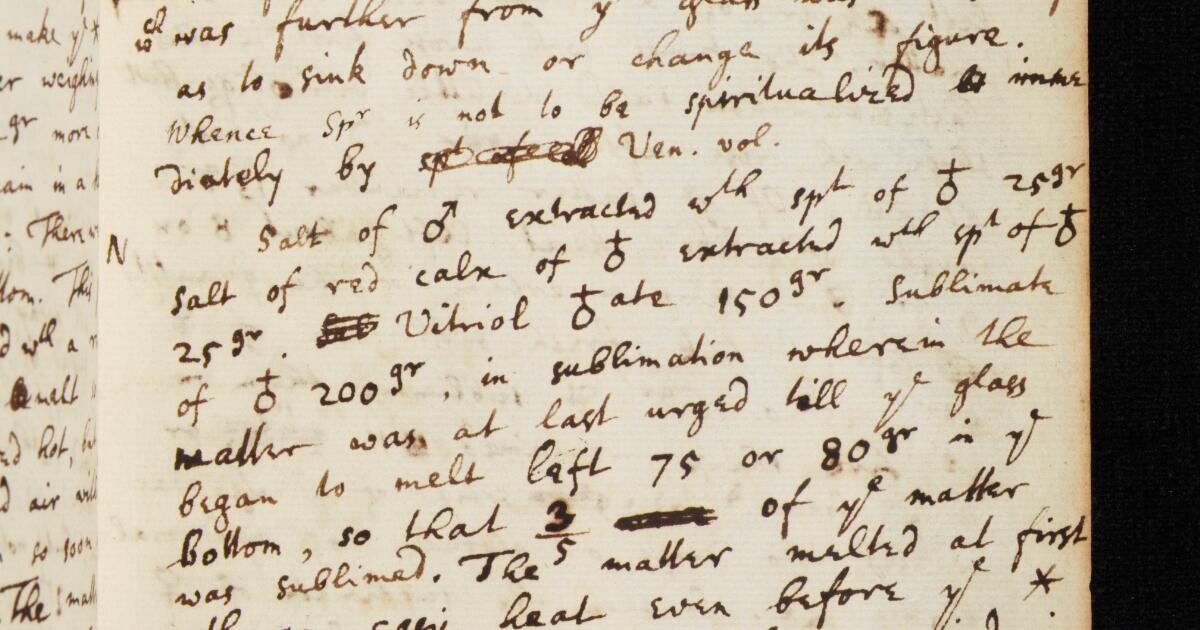 make yͤ *
wᶜʰ was further from yᵉ glass was
as to sink down or change its figure.
Whence Spʳ is not to be spiritualized imme
diately by Ven. vol.
N. Salt of ♂ extracted wᵗʰ spᵗ of ♁ 25ᵍʳ
Salt of red calx of ♁ extracted wᵗʰ spᵗ of ♁
25ᵍʳ. Vitriol ♁ate 150ᵍʳ. Sublimate
of ♁ 200ᵍʳ, in sublimation wherein the
matter was at last urged till yᵉ glass
began to melt left 75 or 80ᵍʳ in yᵉ
bottom, so that 3/5 of yᵉ matter
was sublimed. The matter melted at first
heat even before yᵉ *